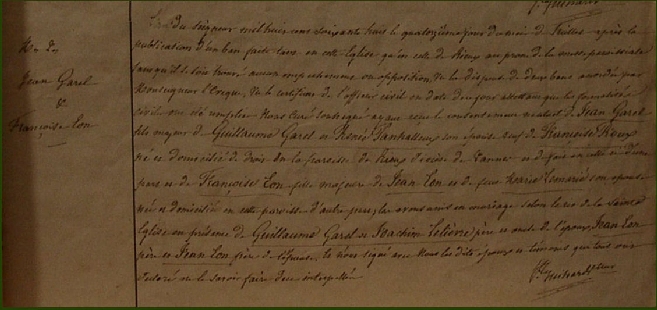 Jean Garel
&
Françoise Lon
L'an du Seigneur mil huit cent soixante huit le quatorzième jour du mois de Juillet après la
publication d'un ban faite tant en cette Eglise qu'en celle de Rieux au prône de la messe paroissiale
sans qu'il se soit trouvé aucun empêchement ou opposition, Vu la dispense de deux bans accordée par
Monseigneur l'Evêque, Vu le certificat de l'officier civil en date du jour attestant que les formalités
civil ont été remplies Nous Curé soussigné ayant reçu le consentement mutuel de Jean Garel
fils majeur de Guillaume Garel et Renée son épouse veuf de Françoise
né et domicilié de droit en la paroisse de Rieux diocèse de Vannes et de fait en cette
part et de Françoise Lon fille majeure de Jean Lon et de feue Marie son épouse
née et domiciliée en cette paroisse d'autre part, les avons unis en mariage selon le rit de la Sainte
Eglise en présence de Guillaume Garel et Joachim Lelièvre père et oncle de l'époux, Jean Lon
père et Jean Lon frère de l'épouse, le nous signé avec nous les dits époux et témoins qui tous ont
déclaré ne le savoir faire de ce interpellés